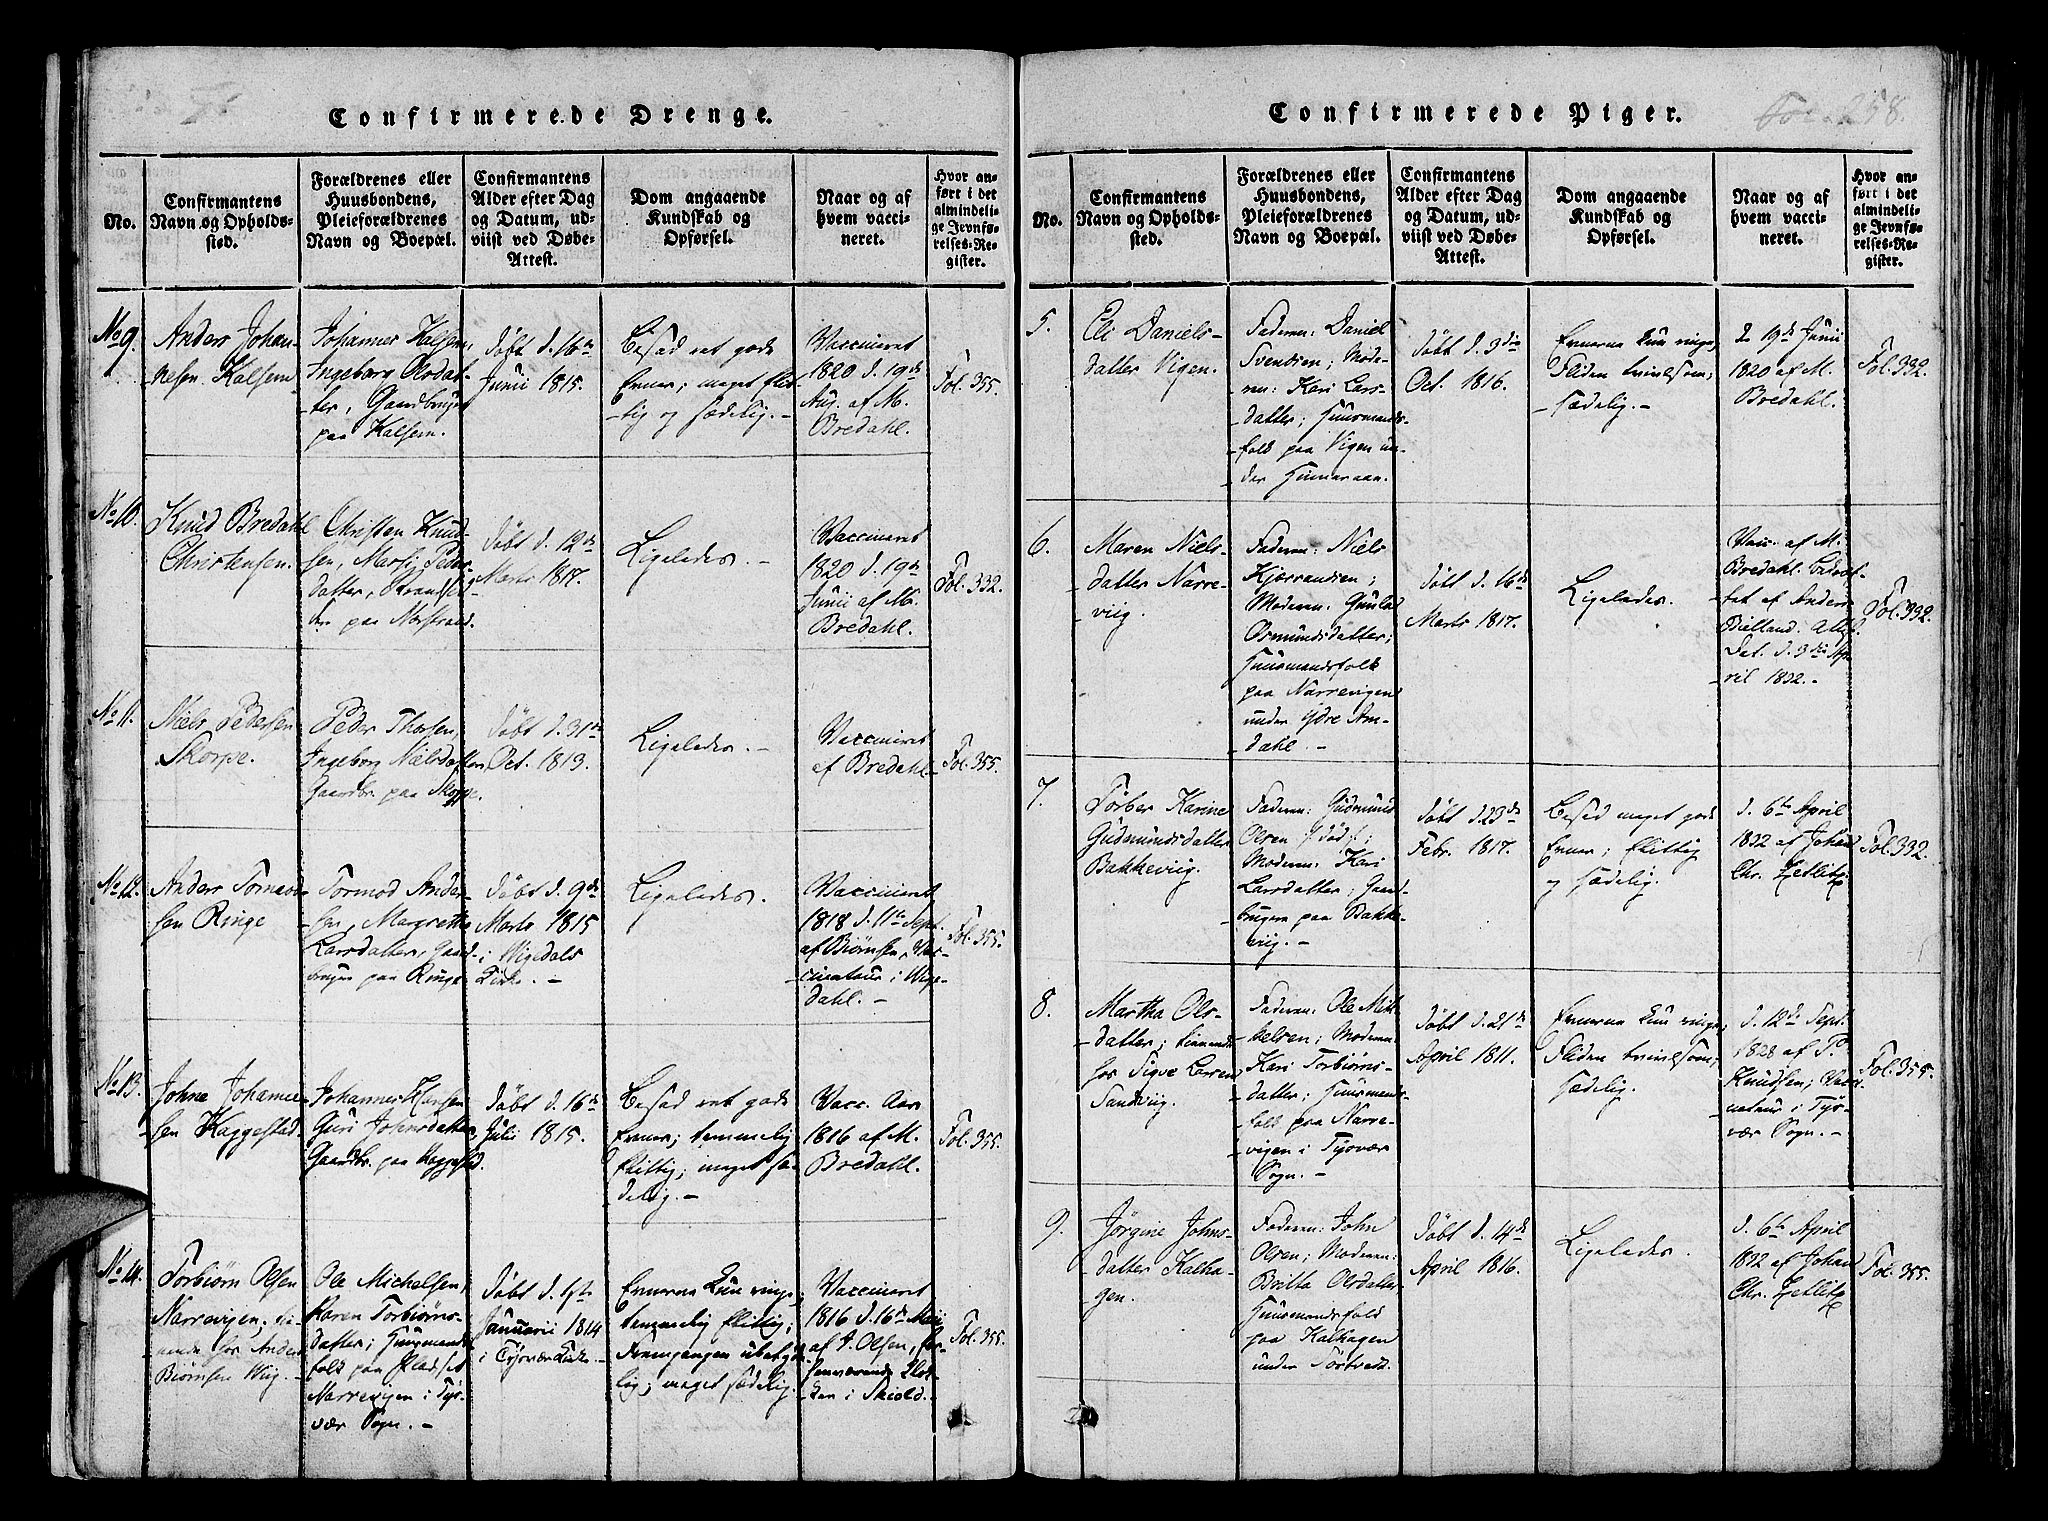 Confirmerede Drenge.
No.
Confirmantens
Navn og Opholds-
sted.
Forældrenes eller
Huusbondens,
Pleieforældrenes
Navn og Boepæl.
Confirmantens
Alder efter Dag
og Datum, ud-
viist ved Døbe-
Attest.
Dom angaaende
Kundskab og
Opførsel.
Naar og af
hvem vacci-
neret.
Hvor an-
ført i det
almindeli-
ge Jevnfø-
relses-Re-
gister.
No 9.
Anders Johan-
nesen Kalsem
Johannes Kalsem,
Ingeborg Olsdat-
ter, Gaardbruger
paa Kalsem.
Døbt d. 16de
Junii 1815.
Besad ret gode
Evner; meget flit-
tig og sædelig.-
Vaccineret
1820 d. 19de
Aug. af M.
Bredahl.
Fol. 355.
No 10.
Knud Bredahl
Christensen.
Christen Knud-
sen, Marti Peders-
datter, Strandsid-
paa Norstrand.
Døbt d. 12de
Marts 1817.
Ligeledes. -
Vaccineret
1820 d. 19de
Junii af M.
Bredahl.
Fol. 332.
No 11.
Niels Pedersen
Skorpe.
Peder Thorsen,
Ingeborg Nielsdatter,
Gaardbr. paa Skorpe.
Døbt d. 31te
Oct. 1813.
Ligeledes. -
Vaccineret
af Bredahl.
Fol. 355.
No 12.
Anders Tormod-
sen Ringe
Tormod Ander-
sen, Margrethe
Larsdatter, Gaard-
bruger paa Ringe
Døbt d. 9de
Marts 1815
i Wigedals
Kirke. -
Ligeledes.
Vaccineret
1818 d. 11te Sept.
af Biørnsen, Vac-
cinateur i Wige-
dahl. -
Fol. 355.
No 13.
Johne Johanne-
sen Kaggestad.
Johannes Hansen
Guri Johnsdatter,
Gaardbr. paa Kaggestad.
Døbt d. 16de
Julii 1815.
Besad ret gode
Evner; temmelig
flittig; meget sæ-
delig. -
Vacc. Aar
1816 af M.
Bredahl.
Fol. 355.
No 14.
Torbiørn Olsen
Narrevigen, 
for Anders
Biørnsen Wiig. -
Ole Michelsen,
Karen Torbiørns-
datter; Huusmands-
folk paa Pladset
Narrevigen i Tys-
vær Sogn. -
Døbt d. 1ste
Januarii 1814
i Tysvær Kirke. -
Evnerne kun ringe;
temmelig flittig;
Fremgangen ubetyde-
lig; meget sædelig.
Vaccineret
1816 d. 16de Maii
af A. Olsen, for-
henværende Klok-
ker i Skiold. -
Fol. 355.
Confirmerede Piger.
Fol. 258.
No.
Confirmantens
Navn og Opholds-
sted.
Forældrenes eller
Huusbondens,
Pleieforældrenes
Navn og Boepæl.
Confirmantens
Alder efter Dag
og Datum, ud-
viist ved Døbe-
Attest.
Dom angaaende
Kundskab og
Opførsel.
Naar og af
hvem vacci-
neret.
Hvor an-
ført i det
almindeli-
ge Jevnfø-
relses-Re-
gister.
5.
Eli Daniels-
datter Vigen.
Faderen: Daniel
Svendsen; Mode-
ren: Kari Lars-
datter; Huusmands-
folk paa Vigen un-
der Gunnaraan.
Døbt d. 3die
Oct. 1816.
Evnerne kun ringe;
Fliden tvivlsom;
sædelig. -
d. 19de Junii
1820 af M.
Bredahl.
Fol. 332.
6.
Maren Niels-
datter Narre-
viig.
Faderen: Niels
Kjærrandsen;
Moderen: Gunla
Osmundsdatter;
Huusmandsfolk
paa Narrevigen
under Ydre Am-
dahl. -
Døbt d. 16de
Marts 1817.
Ligeledes.
Vacc. af M.
Bredahl. Bidrat-
tet af Anders
Bielland. Attest
Dat. d. 3die Ap-
ril 1832. -
Fol. 332.
7.
Torber Karine
Gudmundsdatter
Bakkeviig.
Faderen: Gudmund
Olsen /: død :/;
Moderen: Kari
Larsdatter; Gaard-
brugere paa Bakke-
viig. -
Døbt d. 23de
Febr. 1817.
Besad meget gode
Evner; flittig
og sædelig.
d. 6te April
1832 af Johan
Chr. Zetlitz
Fol. 332.
8.
Martha Ols-
datter; tienende
hos Sigve Larsen
Sandviig.
Faderen: Ole Mik-
kelsen; Moderen:
Kari Torbiørns-
datter; Huusmands-
folk paa Narre-
vigen i Tysvær
Sogn. -
Døbt d. 21de
April 1811.
Evnerne kun ringe;
Fliden tvivlsom;
sædelig.
d. 12te Sept.
1828 af P.
Knudsen; Vacci-
nateur i Tys-
vær Sogn. -
Fol. 355.
9.
Jørgine Johns-
datter Kalha-
gen.
Faderen: John
Olsen; Moderen:
Britta Olsdatter
Huusmandsfolk
paa Kalhagen
under Tortvedt.
Døbt d. 14de
April 1816.
Ligeledes.
d. 6te April
1832 af Johan
Chr. Zetlitz
Fol. 355.